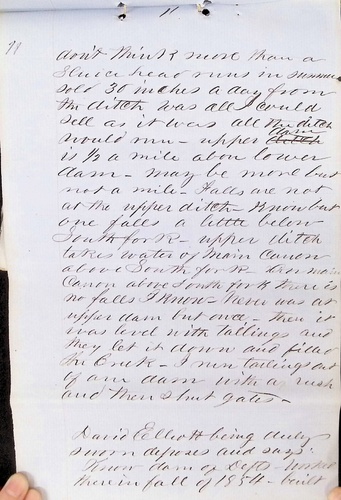 11
11
don't think more than a
Sluice head runs in summer
sold 30 inches a day from
the ditch was all I could
sell as it was all the ditch
would run - upper ditch dam
is 1/2 a mile above lower
dam - may be more but
not a mile - Falls are not
at the upper ditch - Know but
one falls a little below
South fork - upper ditch
takes water of Main Canon
above South fork
Canon above South fork there is
no falls I know - Never was at
upper dam but once - then it
was level with tailings and
they let it down and filled
the Creek - I run tailings out
of our dam with a rush
and then shut gates -
David Elliott being duly
sworn deposes and says:
Know dam of Defts - worked
there in fall of 1854 - built